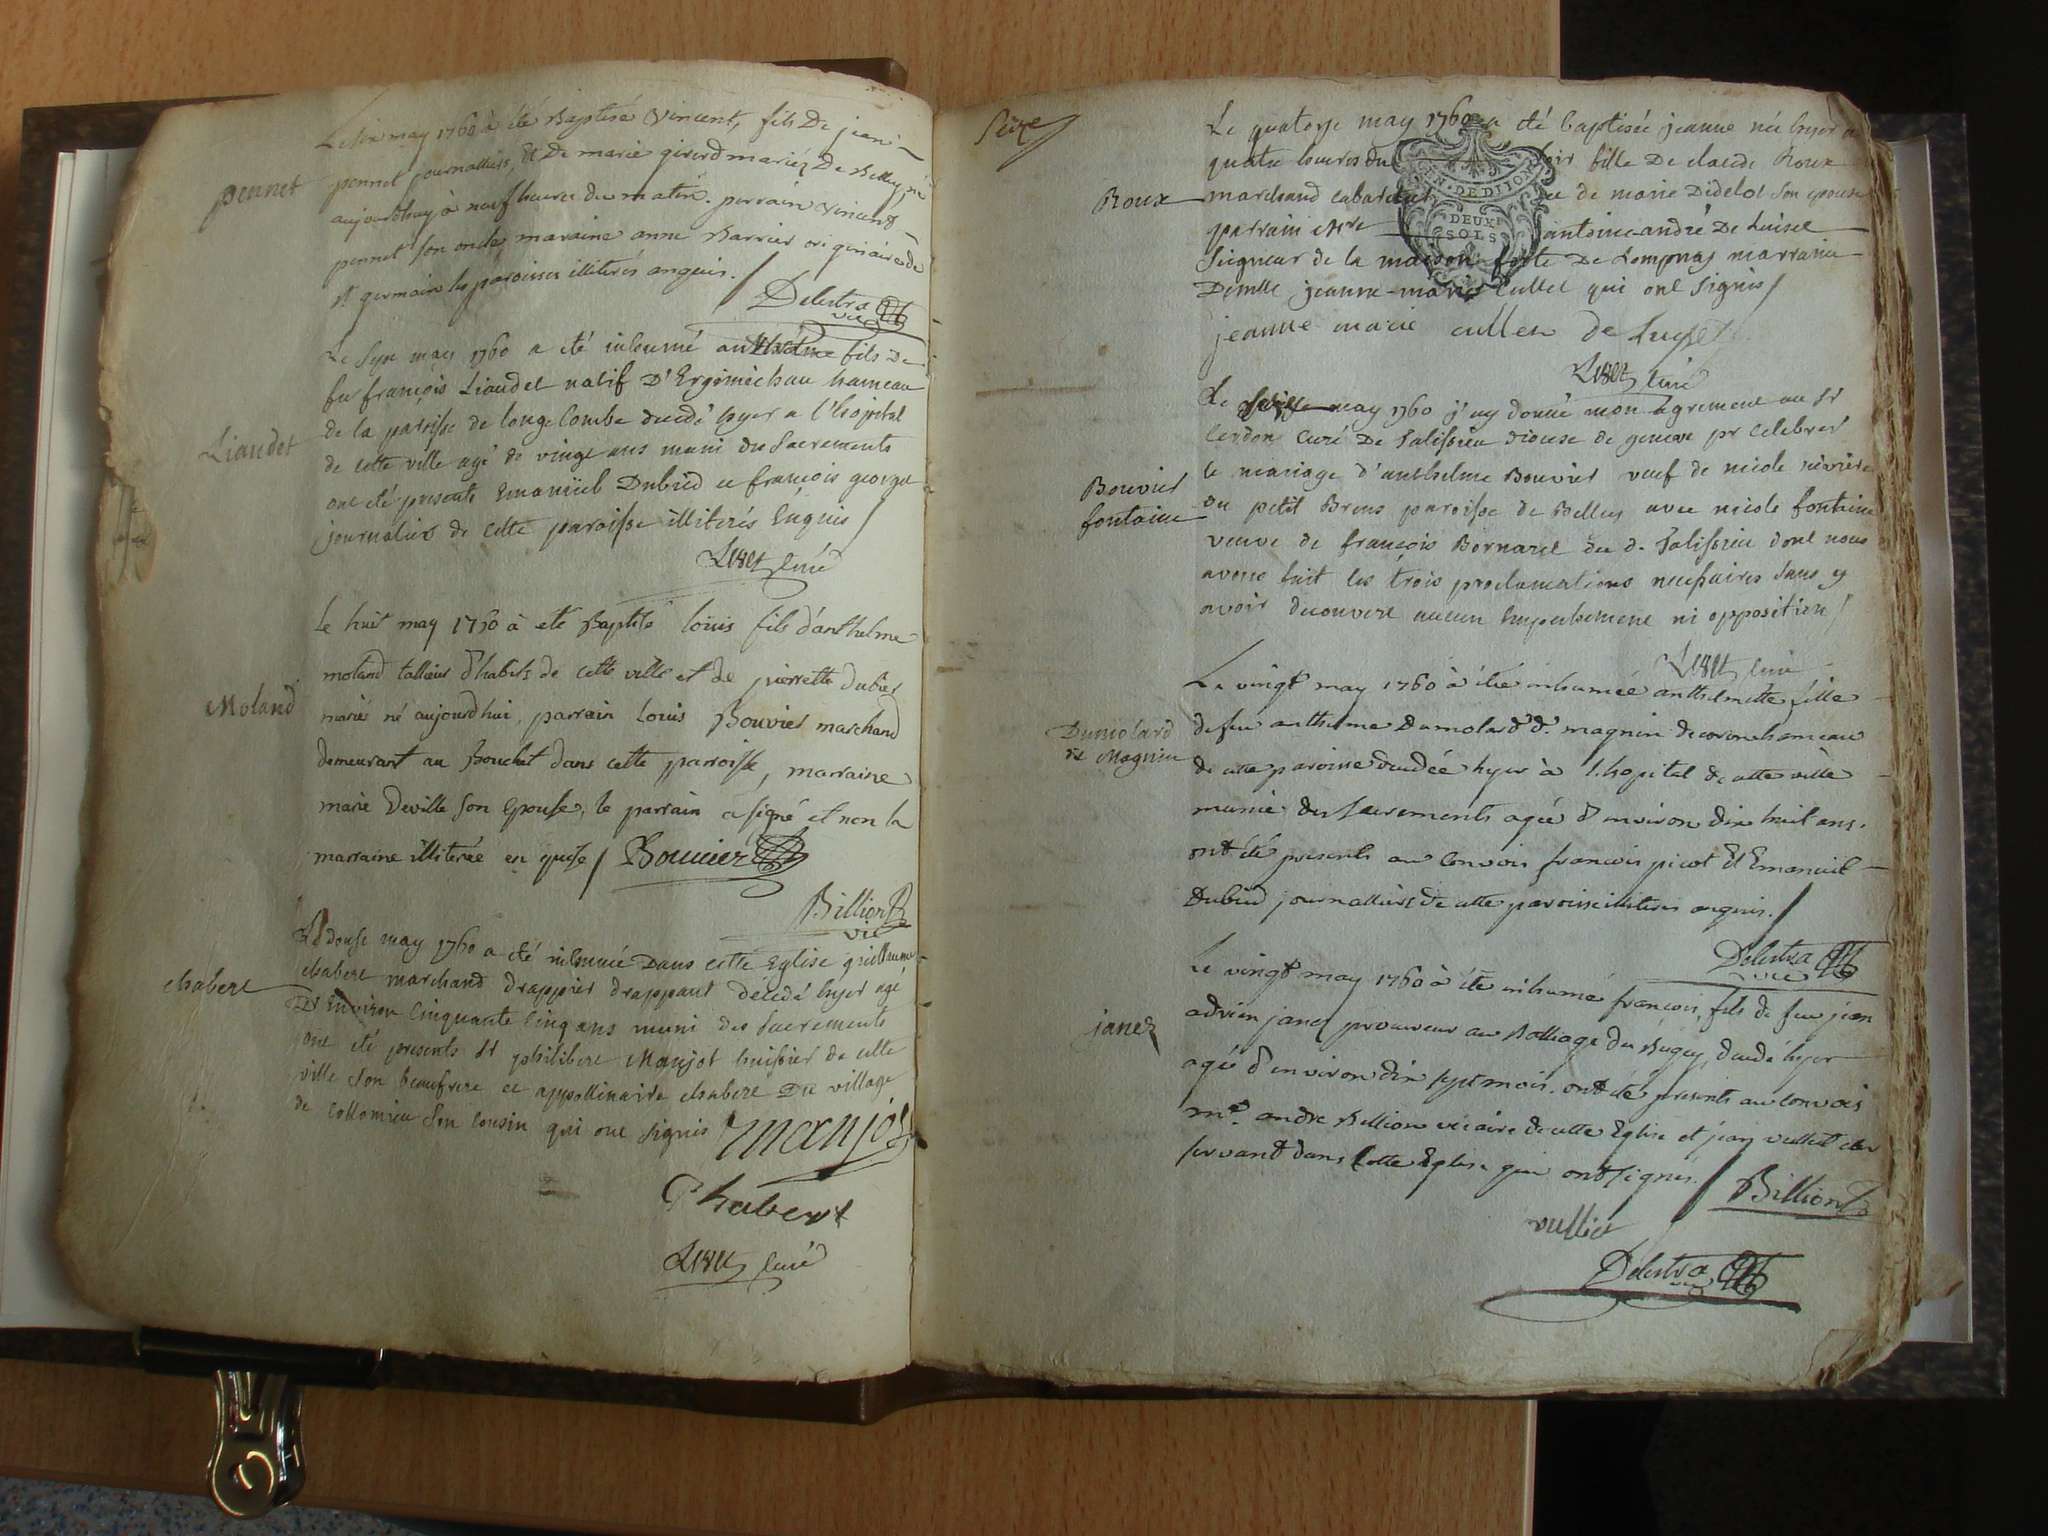 Le six may 1760 à été Baptisé Vincent, fils De jean
pennet journallier, et De marie girerd mariéz De Belley, né
aujourdhuy à neuf heures du matin. parrain vincent
pennet son oncle, maraine anne Barrier originaire de
st germain les paroisses illiterés enquis.
pennet
Delestra
vic
Le Six may 1760 a été inhumé anthelme fils De
feu françois Liaudet natif D'Ergimechau hameau
de la paroisse de longecombe decedé hyer a l'hopital
de cette ville agé de vingt ans muni des Sacrements
ont été presents Emanüel Dubied et françois george
journaliers de cette paroisse illiterés Enquis
Liaudet
curé
Le huit may 1760 à eté Baptisé louis fils d'anthelme
moland tallieur d'habits de cette ville et de pierrette dubied
mariés né aujourdhui, parrain louis Bouvier marchand
demeurant au Bouchet dans cette parroisse, marraine
marie Deville son epouse, le parrain a signé et non la
marraine illiterée en quise / Bouvier
Moland
Billion
vic
Le douse may 1760 a été inhumé Dans cette Eglise guillaume
chabert marchand drappier drappant decedé hyer agé
D'Environ Cinquante Cinq ans muni des Sacrements
ont été presents Sr philibert Manjot huissier de cette
ville Son beaufrere et appollinaire chabert Du village
de Collomieu Son Cousin qui ont signés
chabert
manjot
Chabert
curé
Seize
Le quatorze may 1760 a été baptisée jeanne née hyer a
quatre heures du soir fille De claude Roux
marchand cabaretier et de marie Didelot Son epouse
parrain antoine andré De Luiset
Seigneur de la maison forte De Lompnas marraine
Demlle jeanne-marie Cullet qui ont signés
Roux
GEN. DE DIJON
DEUX
SOLS
jeanne marie cullet de Luyset
curé
Le Seize may 1760 j'ay donné mon agrement au Sr
Cerdon Curé De Salissieu diocese de geneve pr celebrer
le mariage d'anthelme Bouvier veuf de nicole
du petit Brens paroisse de Belley avec nicole fontaine
veuve de françois Bornarel du d. Salissieu dont nous
avons fait les trois proclamations necessaires Sans y
avoir decouvert aucun Empechement ni opposition
Bouvier
fontaine
curé
Le vingt may 1760 à été inhumée anthelmette fille
de feu anthelme Dumolard d. magnin de coron hameau
de cette paroisse decedée hyer à l'hopital de cette ville
munie des sacrements agée d'environ dix huit ans.
ont été presents au Convois francois picot Et Emanuel
Dubied journalliers de cette paroisse illiterés enquis.
Dumolard
dt Magnin
Delestra
vic
Le vingt may 1760 à été inhumé francois, fils de feu jean
adrien janez procureur au Balliage du Bugey, decedé hyer
agé d'environ dix sept mois. ont été presents au convois
mre. andré Billion vicaire de cette Eglise et jean vulliet cler
servant dans Cette Eglise qui ont signés.
janez
Billion
vulliet
Delestra
vic